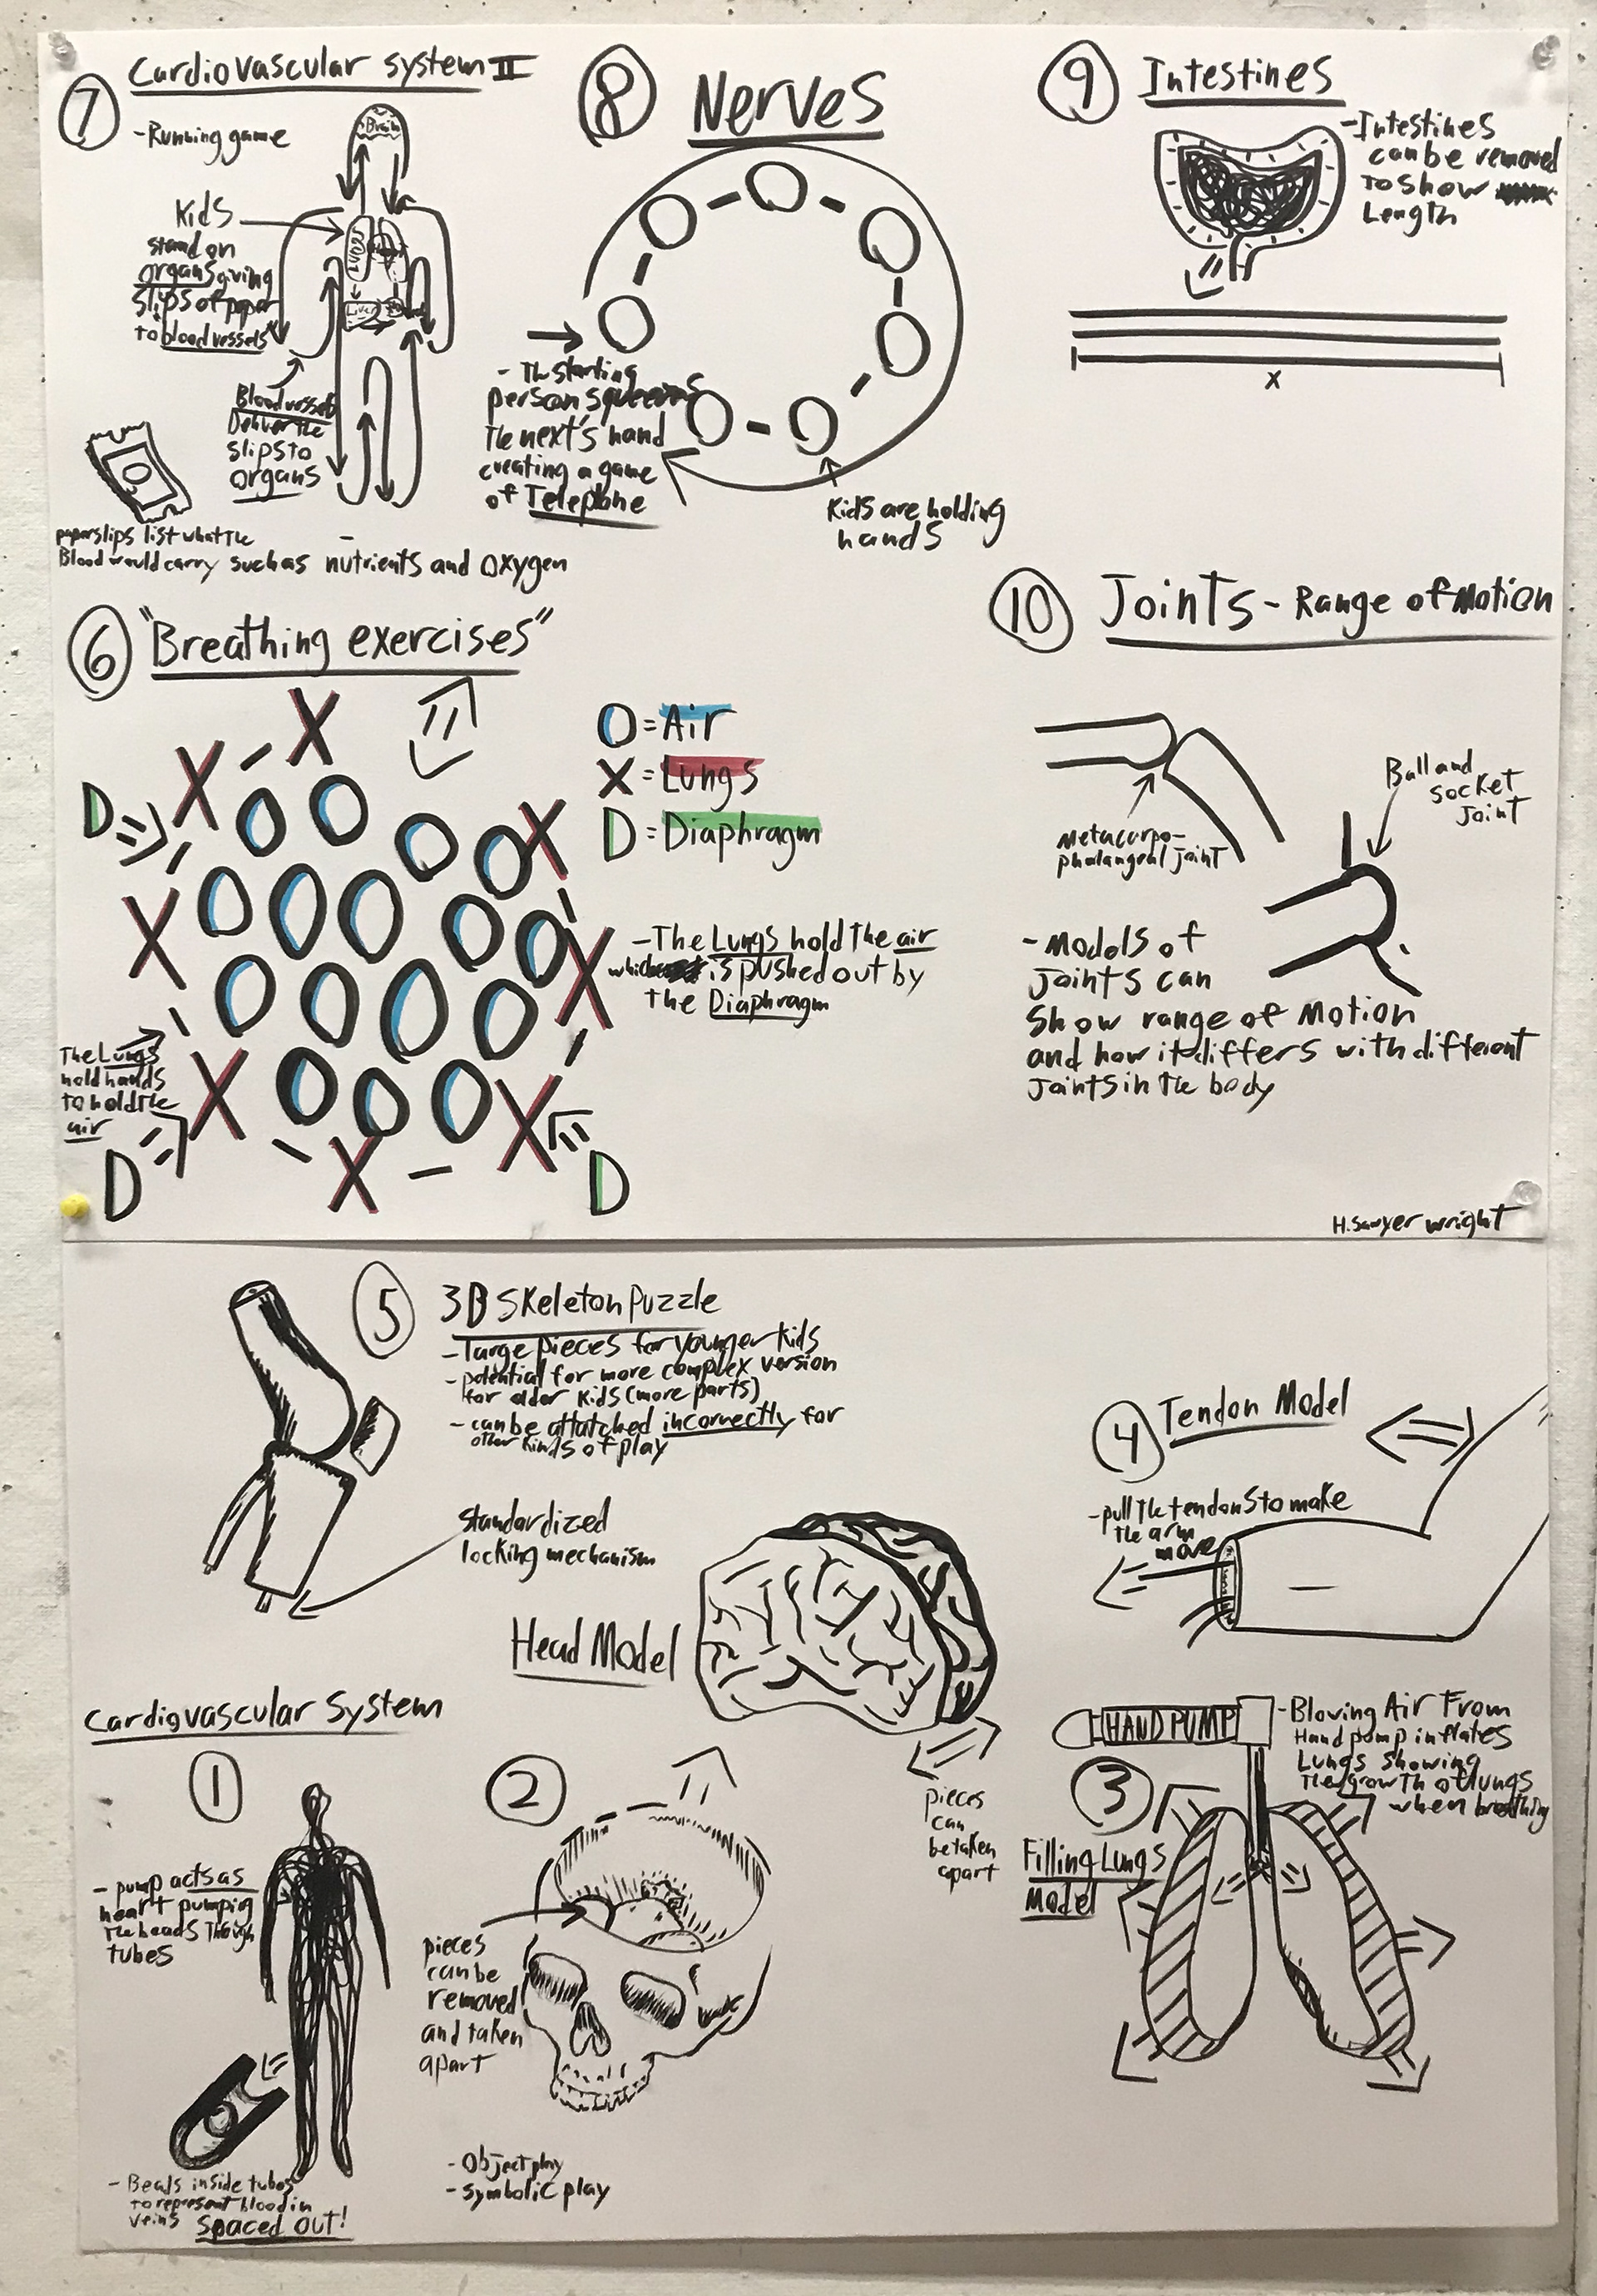 7
Cardiovascular system II
-Running game
Brain
Kids
stand on
organs giving
slips of paper
to blood vessels
Lung
Liver
Blood vessels
Deliver the
slips to
organs
paper slips list what the
Blood would carry such as nutrients and oxygen
8
Nerves
- The starting
person squeezes
the next's hand
creating a game
of Telephone
Kids are holding
hands
9
Intestines
-Intestines
can be removed
to show
Length
x
6
"Breathing exercises"
O = Air
X = Lungs
D = Diaphragm
D
X
X
X
X
X
X
X
X
X
D
D
-The Lungs hold the air
which is pushed out by
the Diaphragm
The Lungs
hold hands
to hold the
air
10
Joints - Range of Motion
Metacarpo-
phalangeal joint
Ball and
socket
joint
- Models of
joints can
show range of motion
and how it differs with different
joints in the body
H. Sawyer Wright
5
3D Skeleton Puzzle
-Large pieces for younger kids
- potential for more complex version
for older kids (more parts)
- can be attatched incorrectly for
other kinds of play
standardized
locking mechanism
4
Tendon Model
-pull the tendons to make
the arm
move
Head Model
pieces
can
be taken
apart
Cardiovascular System
1
- pump acts as
heart pumping
the beads through
tubes
- Beads inside tubes
to represent blood in
veins Spaced out!
2
pieces
can be
removed
and taken
apart
- Object play
- symbolic play
HAND PUMP
-Blowing Air From
Hand pump inflates
Lungs showing
the growth of lungs
when breathing
3
Filling Lungs
Model